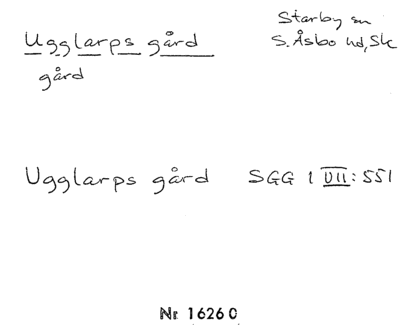 Ugglarps gård
Starby sn
S. Åsbo hd, Sk
gård
Ugglarps gård SGG 1 VII: 551
Nr 16260